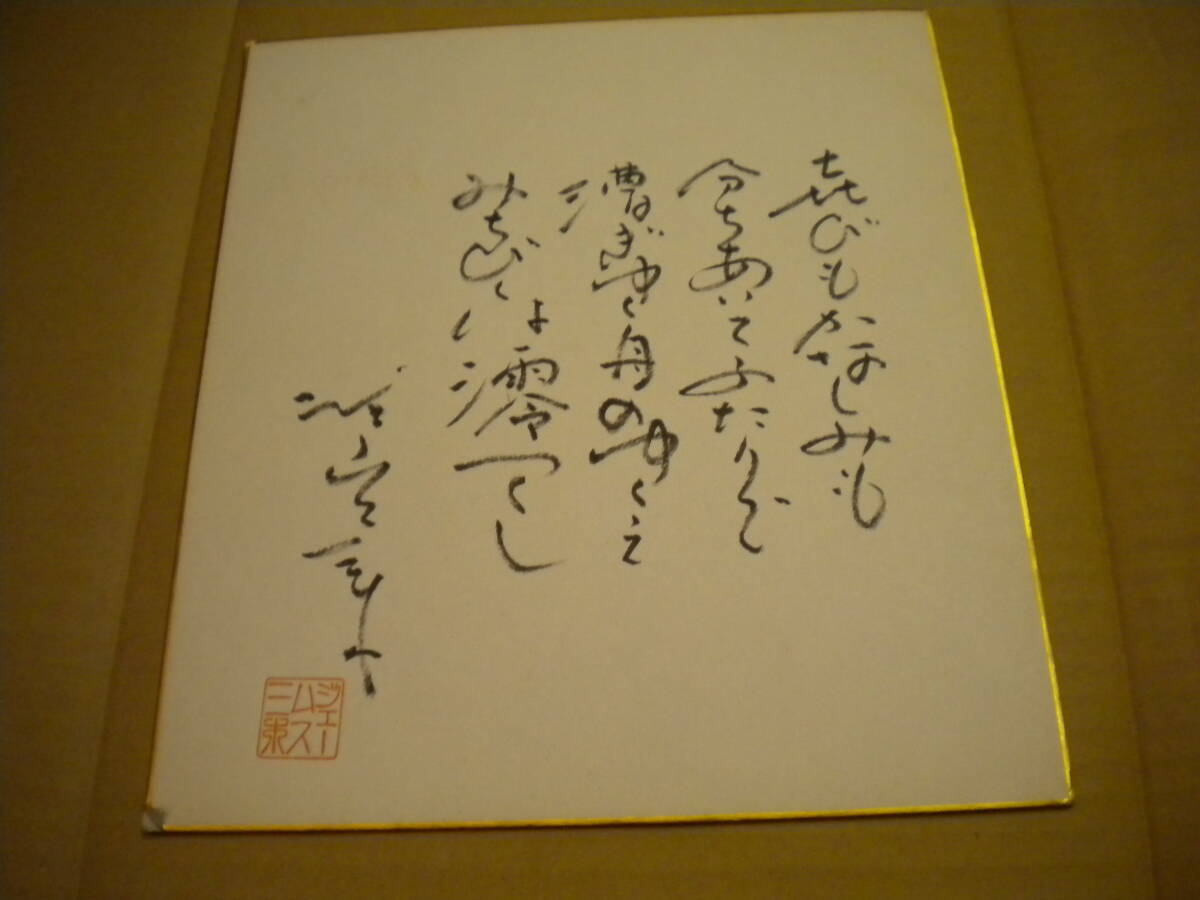 喜びもかなしみも
分ちあいてふたり
漕ぎゆく舟のゆくえ
みちびくは澪つくし
ジェームス三木